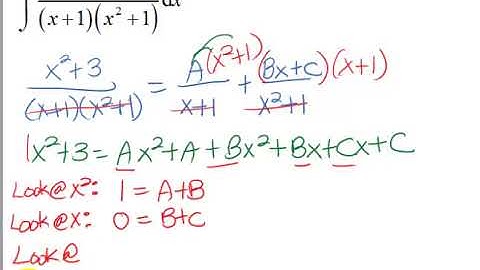 ∫ (x+1)(x²+1) dx
x²+3 / (x+1)(x²+1) = A(x²+1) / x+1 + (Bx+C)(x+1) / x²+1
1x²+3 = Ax²+A+Bx²+Bx+Cx+C
Look@x²: 1=A+B
Look@x: 0=B+C
Look@